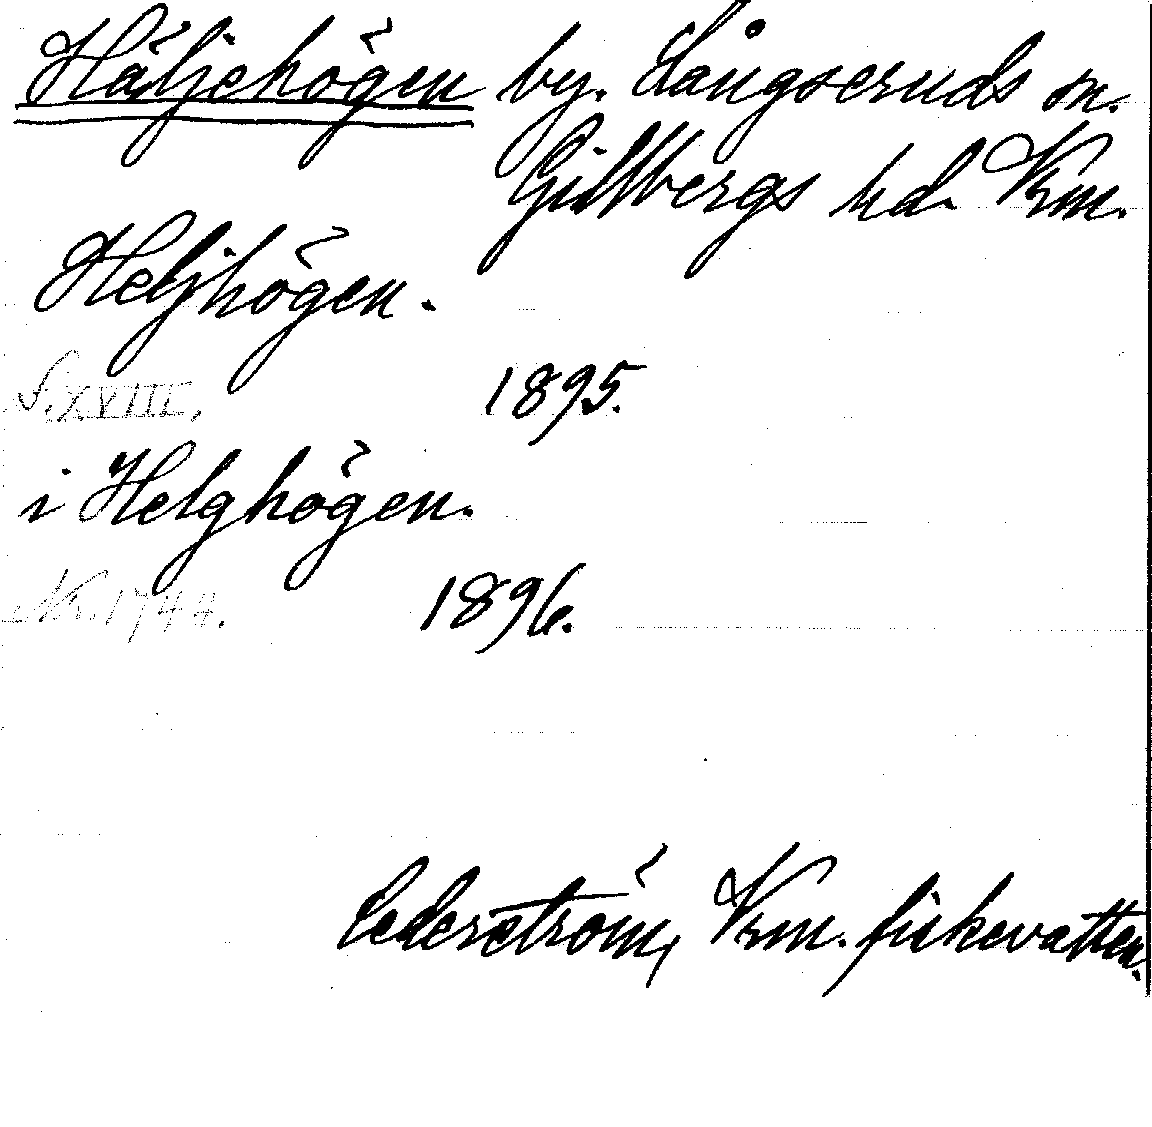 Häljehögen by. Långseruds sn.
Gillbergs hd. Vrm.
Heljhögen.
S. XVIII. 1895.
i Helghögen.
Nr. 1744. 1896.
Cederström, Vrm. fiskevatten.